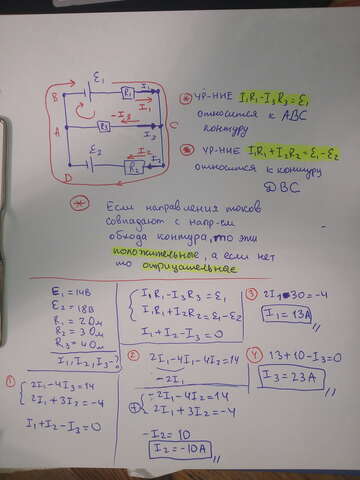 B
Ɛ₁
R₁
I₁
I₁
-I₃
A
R₃
I₃
C
Ɛ₂
I₂
R₂
I₂
D
* УР-НИЕ I₁R₁-I₃R₃=Ɛ₁
относится к ABC
контуру
* УР-НИЕ I₁R₁+I₃R₂=Ɛ₁-Ɛ₂
относится к контуру
DBC
* Если направления токов
совпадают с напр-ем
обхода контура, то эти
положительные, а если нет
то отрицательные
Ɛ₁=14В
Ɛ₂=18В
R₁=2 Ом
R₂=3 Ом
R₃=4 Ом
I₁,I₂,I₃-?
I₁R₁-I₃R₃=Ɛ₁
I₁R₁+I₂R₂=Ɛ₁-Ɛ₂
I₁+I₂-I₃=0
1
2I₁-4I₃=14
2I₁+3I₂=-4
I₁+I₂-I₃=0
2
2I₁-4I₁-4I₂=14
-2I₁
-2I₁-4I₂=14
+
2I₁+3I₂=-4
-I₂=10
I₂=-10A
3 2I₁-30=-4
I₁=13A
4 13+10-I₃=0
I₃=23A